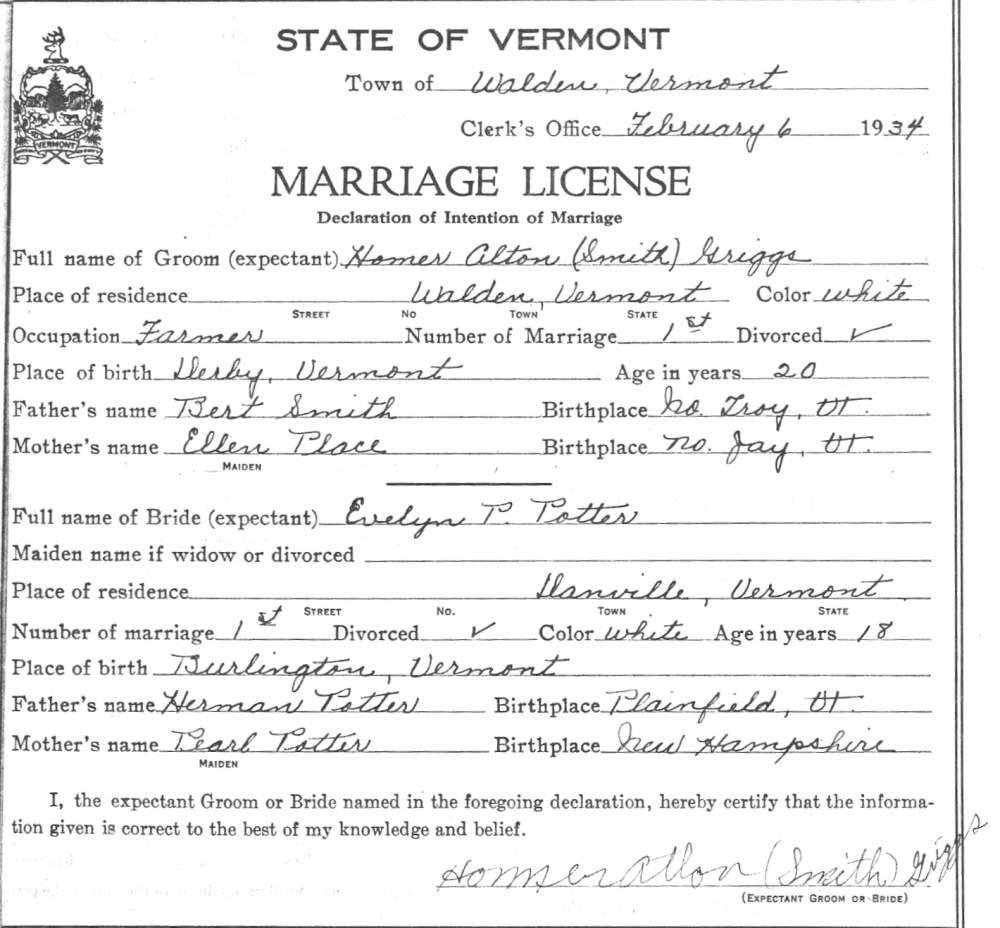 STATE OF VERMONT
Town of Walden, Vermont
VERMONT
Clerk's Office February 6 1934
MARRIAGE LICENSE
Declaration of Intention of Marriage
Full name of Groom (expectant) Homer Alton (Smith) Griggs
Place of residence Walden, Vermont Color white
STREET No TOWN STATE
Occupation Farmer Number of Marriage 1st Divorced ✓
Place of birth Derby, Vermont Age in years 20
Father's name Bert Smith Birthplace No. Troy, Vt.
Mother's name Ellen Place Birthplace No. Jay, Vt.
MAIDEN
Full name of Bride (expectant) Evelyn P. Potter
Maiden name if widow or divorced
Place of residence Danville, Vermont
STREET No. TOWN STATE
Number of marriage 1st Divorced ✓ Color white Age in years 18
Place of birth Burlington, Vermont
Father's name Herman Potter Birthplace Plainfield, Vt.
Mother's name Pearl Potter Birthplace New Hampshire
MAIDEN
I, the expectant Groom or Bride named in the foregoing declaration, hereby certify that the informa-
tion given is correct to the best of my knowledge and belief.
Homer Alton (Smith) Griggs
(EXPECTANT GROOM OR BRIDE)